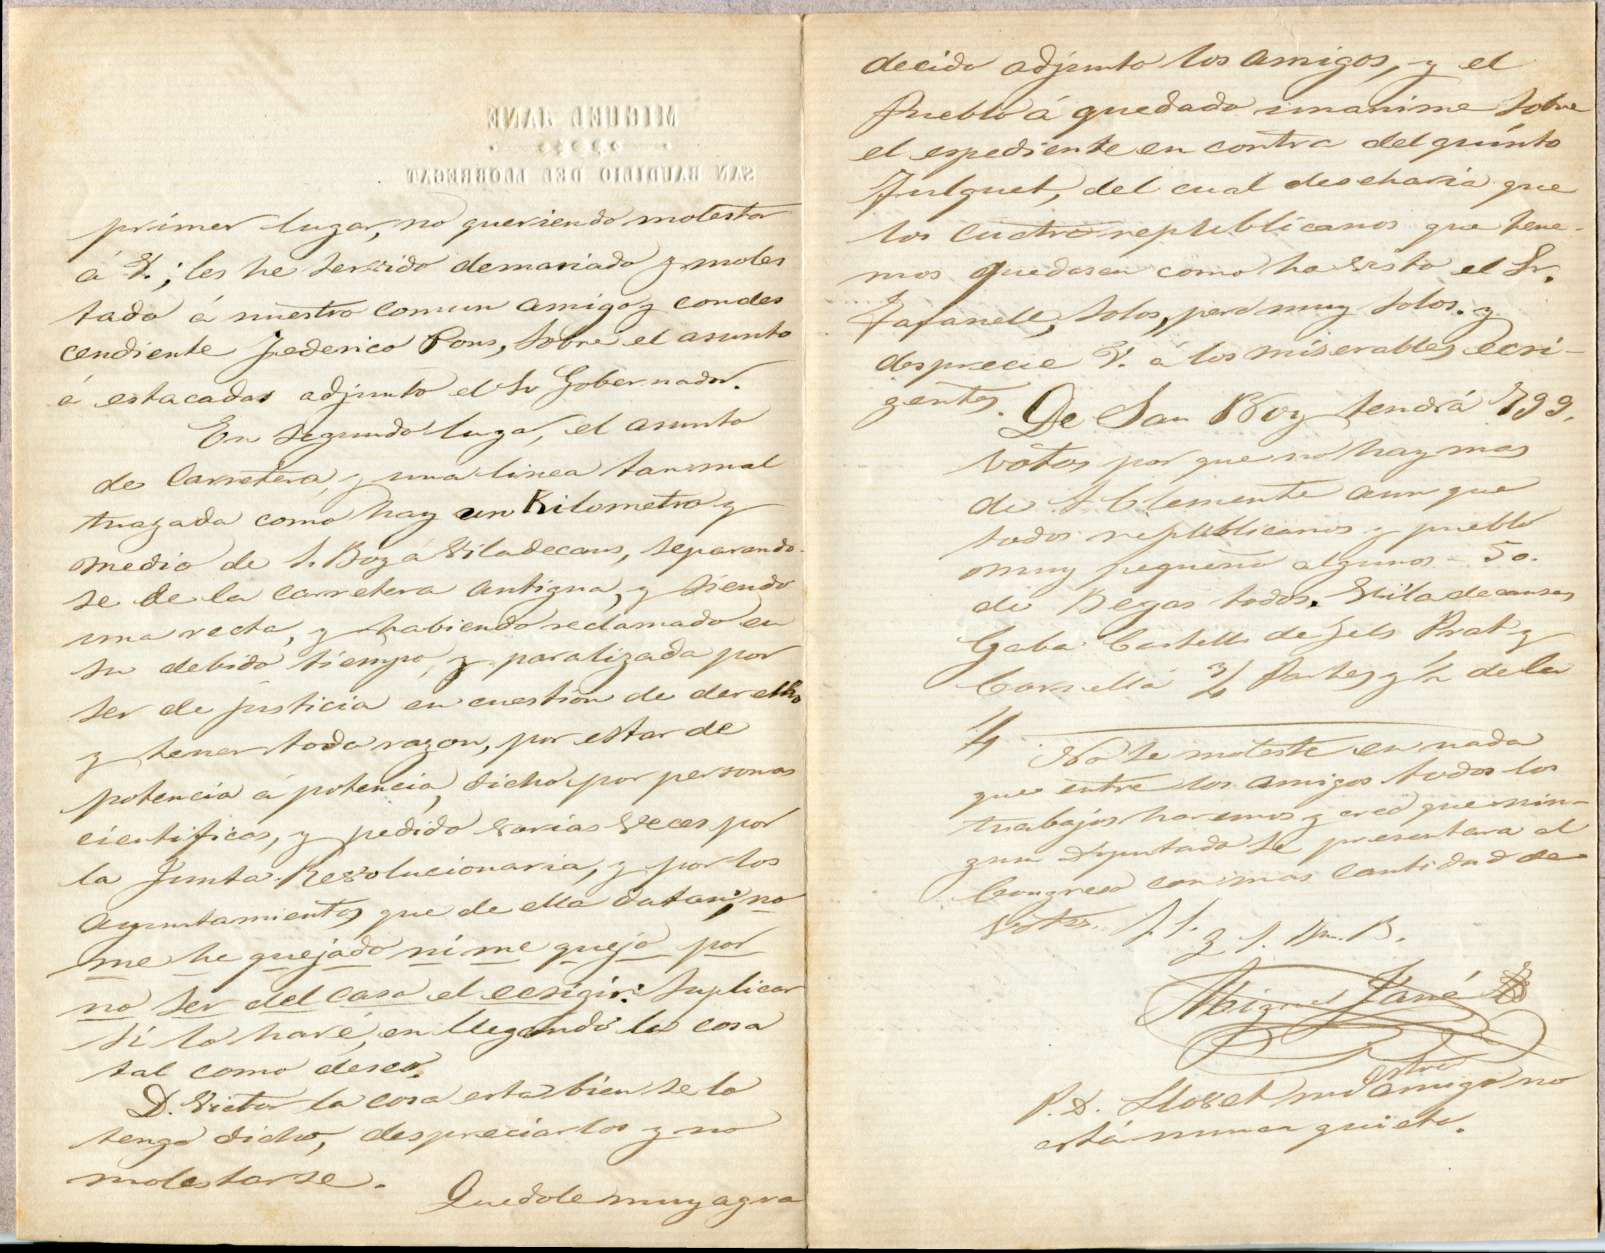 MIGUEL JANÉ
SAN BAUDILIO DEL LLOBREGAT
primer lugar, no queriendo molestar
á V.; les he servido demasiado y moles
tado á nuestro comun amigo y condes
cendiente Federico Pons, sobre el asunto
é estacadas adjunto el Sr Gobernador.
En segundo lugar, el asunto
de Carretera, y una linea tan mal
trazada como hay un Kilometro y
medio de S. Boy á Viladecans, separando-
se de la carretera antigua, y siendo
una recta, y habiendo reclamado en
su debido tiempo, y paralizada por
ser de justicia en cuestion de derecho
y tener toda razon, por estar de
potencia á potencia, dicho por personas
cientificas, y pedido varias veces por
la Junta Revolucionaria, y por los
ayuntamientos que de ella datan; no
me he quejado ni me quejo por
no ser del caso el ecsigir: suplicar
si lo haré, en llegando la cosa
tal como deseo.
D. Victor la cosa esta bien se lo
tengo dicho, despreciarlos y no
molestarse.
Quedole muy agra
decido adjunto los amigos, y el
Pueblo á quedado unanime sobre
el espediente en contra del quinto
Julquet, del cual desearia que
los cuatro republicanos que tene-
mos quedasen como ha visto el Sr.
Fafanell, solos, pero muy solos. y
desprecie V. á los miserables ecsi-
gentes.
De San Boy tendrá 799,
votos por que no hay mas
de S Clemente aun que
todos republicanos y pueblo
muy pequeño algunos - 50.
de Begas todos. Viladecanses
Gaba Castell de Fels Prat y
Cornella 3/4 Partes y 1/2 de la
1/4
No se moleste en nada
que entre los amigos todos los
trabajos haremos y creo que nin-
gun Diputado se presentara al
Congreso con mas cantidad de
votos. S. S.
Q. S. M. B.
Miguel Jané
P. D. Llovet nuestro amigo no
está nunca quieto.